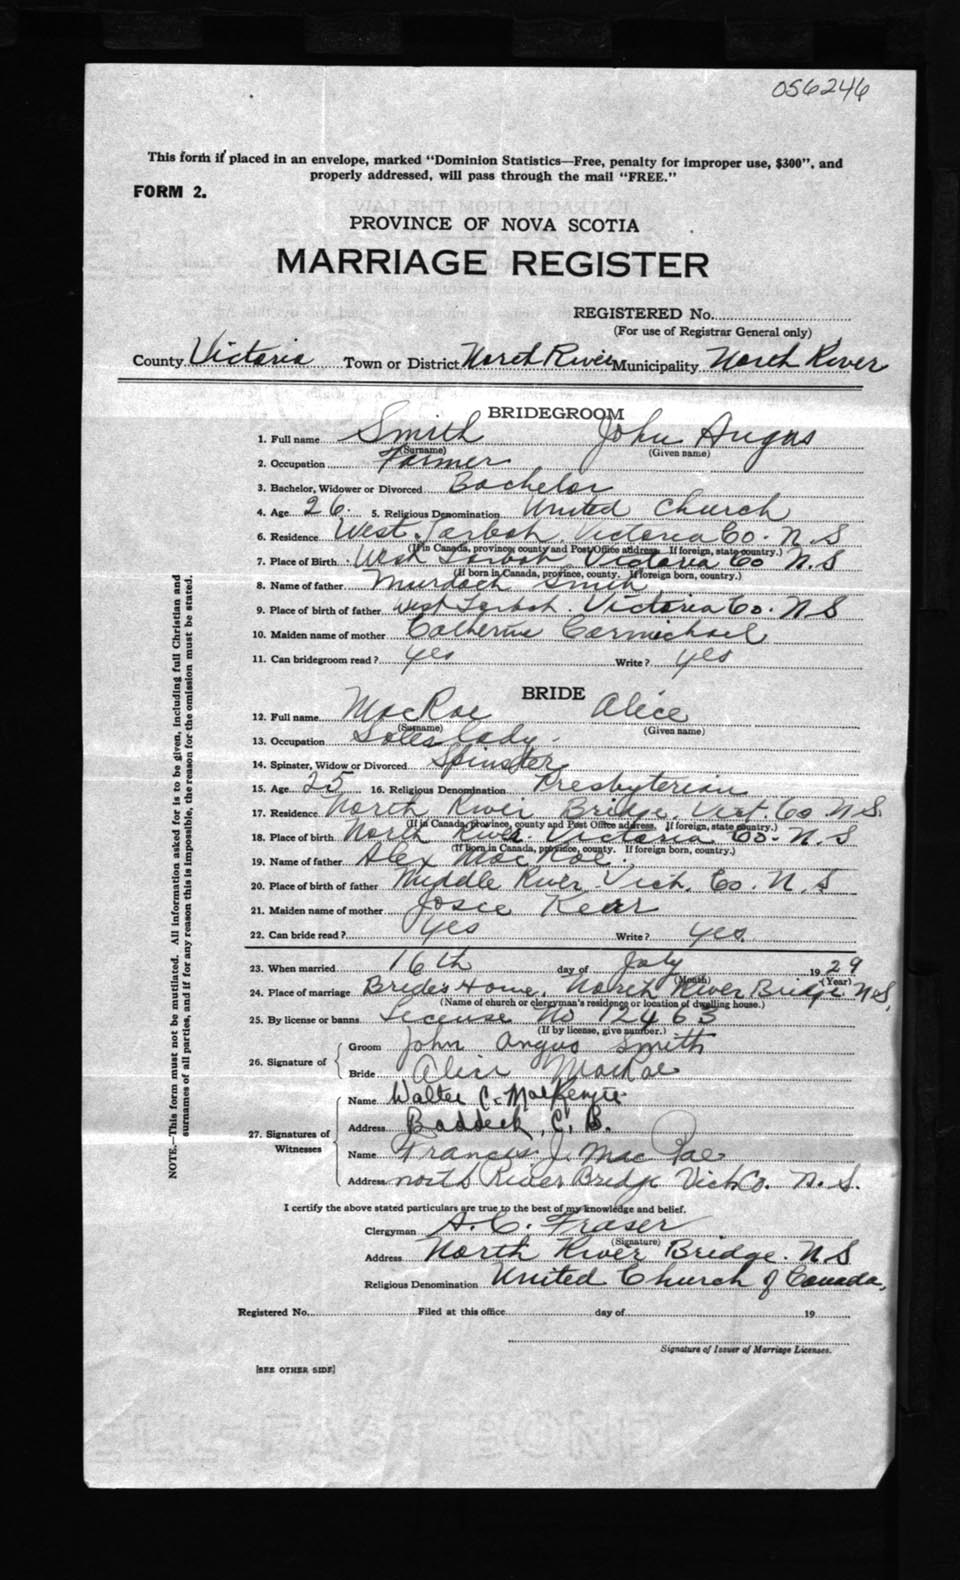 056246
This form if placed in an envelope, marked "Dominion Statistics—Free, penalty for improper use, $300", and
properly addressed, will pass through the mail "FREE."
FORM 2.
PROVINCE OF NOVA SCOTIA
MARRIAGE REGISTER
REGISTERED No.
(For use of Registrar General only)
County Victoria Town or District North River Municipality North River
BRIDEGROOM
1. Full name Smith John Angus
(Surname) (Given name)
2. Occupation Farmer
3. Bachelor, Widower or Divorced Bachelor
4. Age 26 5. Religious Denomination United Church
6. Residence West Tarbot, Victoria Co. N.S
(If in Canada, province, county and Post Office address. If foreign, state country.)
7. Place of Birth West Tarbot Victoria Co N.S
(If born in Canada, province, county. If foreign born, country.)
8. Name of father Murdoch Smith
9. Place of birth of father West Tarbot. Victoria Co. N.S
10. Maiden name of mother Catherine Carmichael
11. Can bridegroom read? yes Write? yes
BRIDE
12. Full name MacRae Alice
(Surname) (Given name)
13. Occupation Saleslady.
14. Spinster, Widow or Divorced Spinster
15. Age 25 16. Religious Denomination Presbyterian
17. Residence North River Bridge, Vict. Co N.S.
(If in Canada, province, county and Post Office address. If foreign, state country.)
18. Place of birth North River Victoria Co. N.S
(If born in Canada, province, county. If foreign born, country.)
19. Name of father Alex MacRae.
20. Place of birth of father Middle River Vict. Co. N.S
21. Maiden name of mother Josie Kerr
22. Can bride read? yes Write? yes.
23. When married 16th day of July 1929
(Month) (Year)
24. Place of marriage Brides Home, North River Bridge N.S,
(Name of church or clergyman's residence or location of dwelling house.)
25. By license or banns License No 12463
(If by license, give number.)
26. Signature of Groom John Angus Smith
Bride Alice MacRae
27. Signatures of Witnesses Name Walter C. MacKenzie
Address Baddeck, C. B.
Name Francis J. MacRae
Address North River Bridge Vict Co. N. S.
I certify the above stated particulars are true to the best of my knowledge and belief.
Clergyman A. C. Fraser
(Signature)
Address North River Bridge. N.S
Religious Denomination United Church of Canada,
Registered No. Filed at this office day of 19
Signature of Issuer of Marriage Licenses.
[SEE OTHER SIDE]
NOTE.—This form must not be mutilated. All information asked for is to be given, including full Christian and
surnames of all parties, and if for any reason this is impossible, the reason for the omission must be stated.